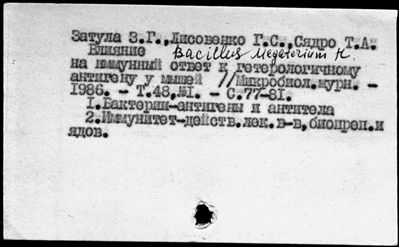 Затула З.Г., Лисовенко Г.С., Сядро Т.А.
Влияние Bacillus Megaterium H.
на иммунный ответ к гетерологичному
антигену у мышей // Микробиол.журн. –
1986. – Т.48, №1. – С.77-81.
1.Бактерии-антигены и антитела
2.Иммунитет-действ.лек.в-в,биопреп.и
ядов.